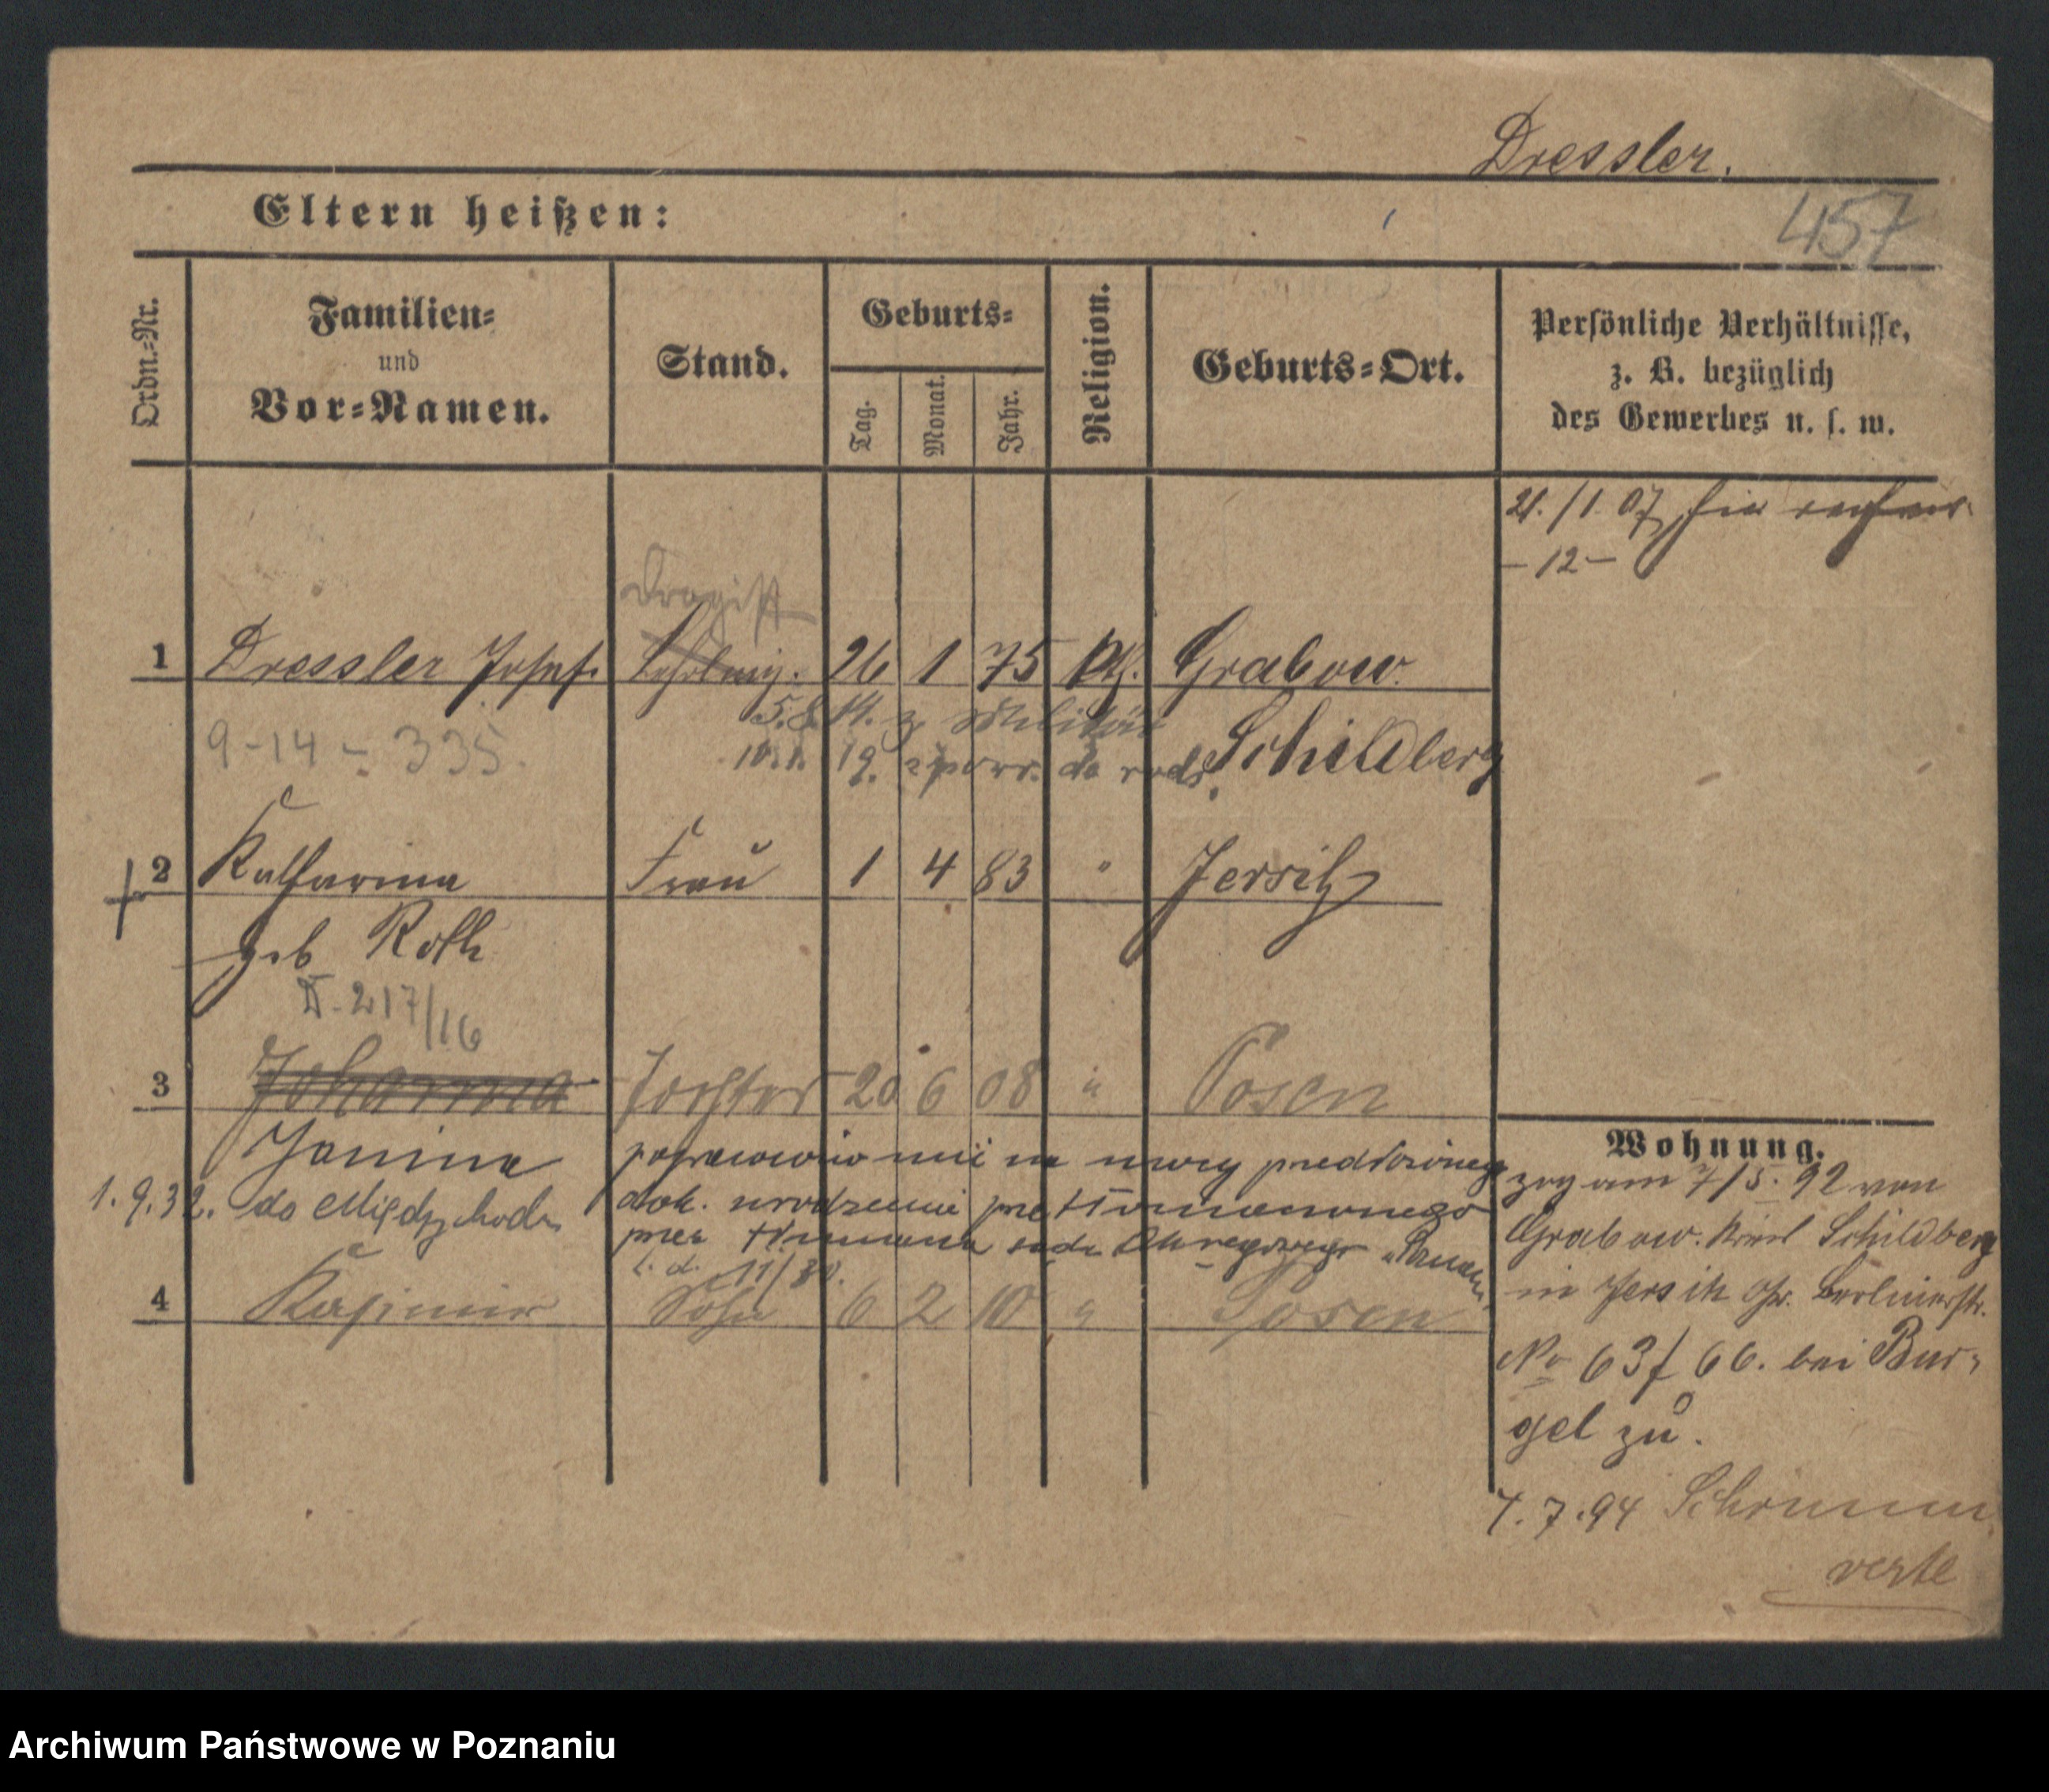 Dressler.
Eltern heißen:
457
Ordn.-Nr.
Familien-
und
Vor-Namen.
Stand.
Geburts-
Tag.
Monat.
Jahr.
Religion.
Geburts-Ort.
Persönliche Verhältnisse,
z. B. bezüglich
des Gewerbes u. s. w.
21./1. 07
- 12 -
Drogist
1 Dressler Josef. Lehrling. 26 1 75 kth. Grabow.
5.8.14. z. Militär
Schildberg
9-14 - 335.
19. z powr. do rodz.
2 Katharina Frau 1 4 83 " Jersitz
geb Roth
217/16
3 Johanna Tochter 20 6 08 " Posen
Janina
poprawiono imię na mocy predłożonej
1.9.32. do Międzychodu
dok. urodzenia przetłomaczonego
przez tłumacza sądu Okręgowego
11/30.
4 Kasimir Sohn 6 2 10 " Posen
Wohnung.
zog am 7/5. 92 von
Grabow. Kreis Schildberg
in Jersitz Gr. Berlinerstr.
No 63/66. bei Bur-
gel zu.
7.7.94 Schrimm
verte
Archiwum Państwowe w Poznaniu